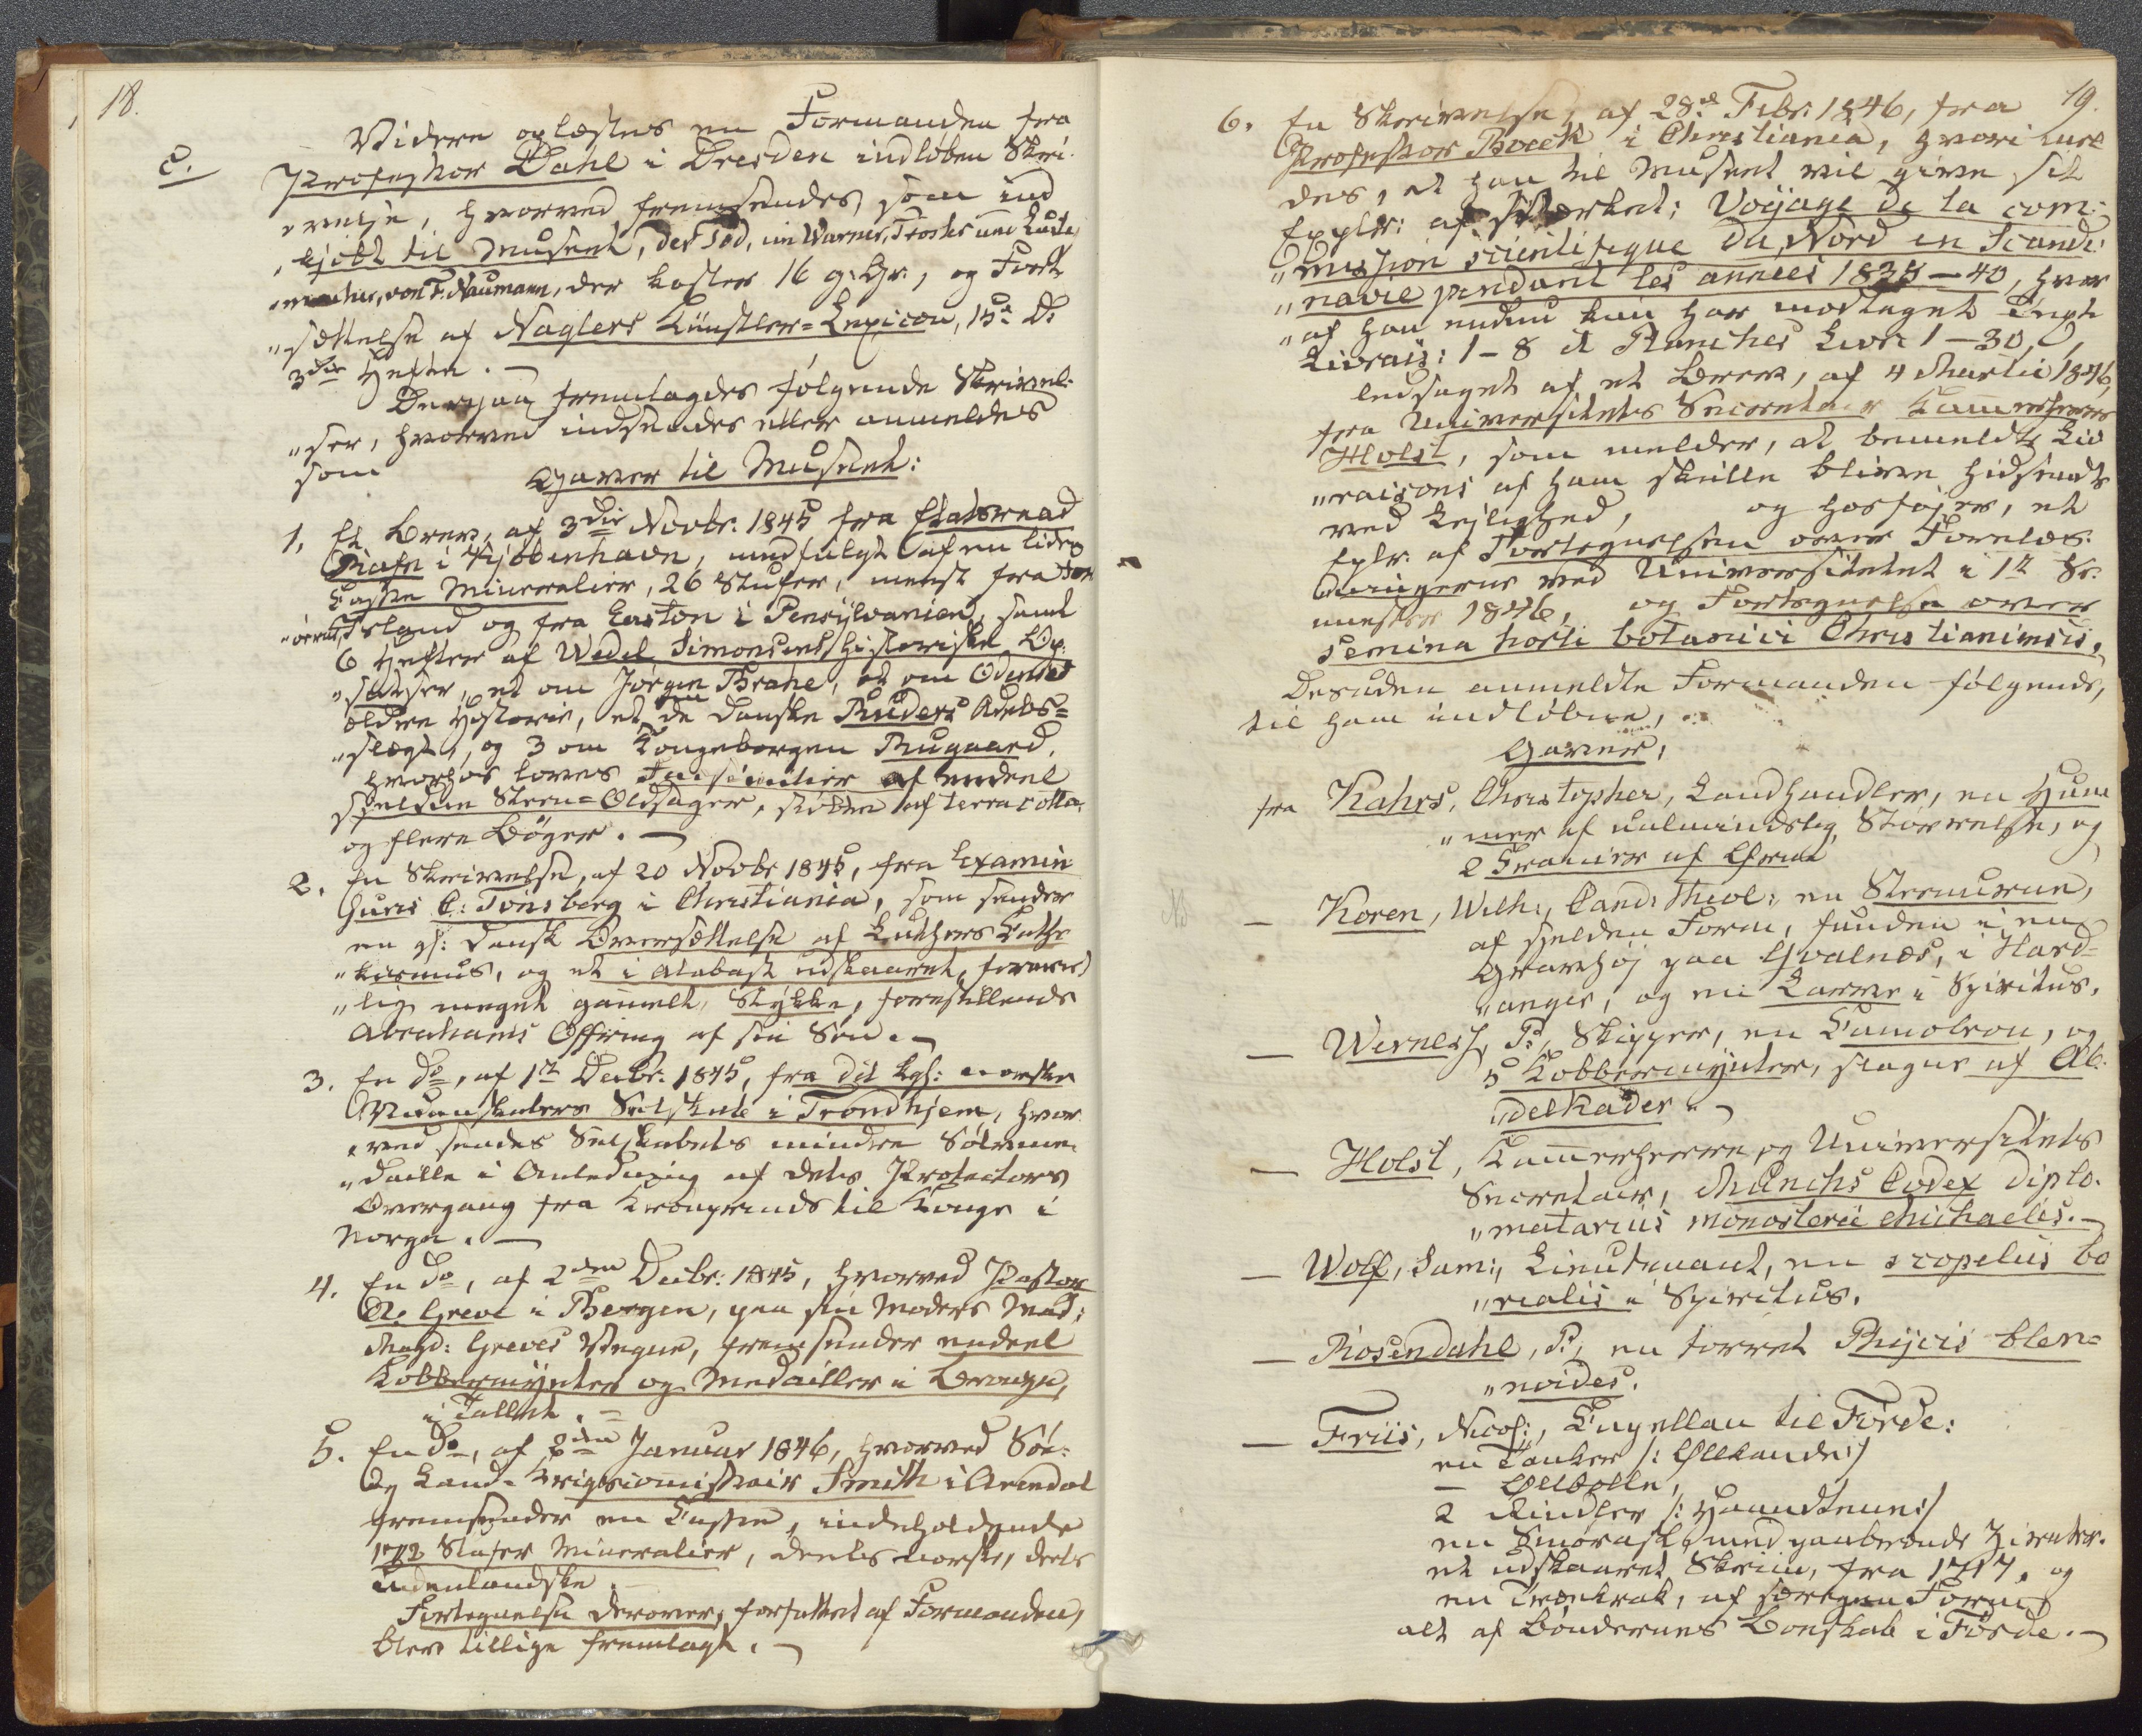 18.
c. Videre oplæstes en Formanden fra
Professor Dahl i Dresden indloben Skri-
"velse, hvorved fremsendes, som ind
"kjöbt til Museet, der Tod, im Warner, Troster und
von F. Naumann, der koster 16 g. Gr., og Fort
"sættelse af Naglers Künstler=Lexicon, 15de B:
3die Hefte. —
Derpaa fremlagdes følgende Skrivel-
"ser, hvorved indsendes eller anmeldes
som
Gaver til Museet:
1. Et Brev, af 3die Novbr. 1845 fra Etatsraad
Rafn i Kjöbenhavn, medfulgt af en liden
Kasse Mineralier, 26 Stufer, meest fra
Island og fra Easton i Pensylvanien, samt
6 Hefter af Wedel Simonsens historiske Op-
"satser, et om Jorgen Brahe, et om Odense
ældre Historie, et om de Danske Ruders Adels=
"slægt, og 3 om Kongeborgen Rugaard,
hvorhos loves Facsimilier af endeel
sjeldne Steen=Oldsager, stöbte af terra cotta,
og flere Böger. —
2. En Skrivelse, af 20 Novbr 1845, fra Examin
Juris C: Tönsberg i Christiania, som sender
en gl: Dansk Oversættelse af Luthers Cathe
"kismus, og et i Alabast udskaaret, formod
"lig meget gammelt, Stykke, forestillende
Abrahams Offring af sin Sön. —
3. En Do, af 1te Decbr. 1845, fra det kgl: norske
Videnskabers Selskab i Trondhjem, hvor
"ved sendes Selskabets mindre Sölvme-
"daille i Anledning af dets Protectors
Overgang fra Kronprinds til Konge i
Norge. —
4. En Do, af 2den Decbr: 1845, hvorved Pastor
A. Greve i Bergen, paa sin Moders Mad:
Magd: Greves Vegne, fremsender endeel
Kobbermynter og Medailler i Bronze,
i Tallet. =
5. En Do, af 8de Januar 1846, hvorved Söe-
og Land-Krigscommissair Smith i Arendal
fremsender en Kasse, indeholdende
172 Stufer Mineralier, deels norske, deels
udenlandske. —
Fortegnelse derover, forfattet af Formanden,
blev tillige fremlagt. —
19.
6. En Skrivelse, af 28de Febr. 1846, fra
Professor Boeck i Christiania, hvori
des, at han til Museet vil give sit
Explr: af Værket: Voyage de la com-
"mission scientifique du Nord en Scandi-
"navie pendant les années 1838—40, hvor
"af han endnu kun har modtaget Text
Livrais: 1—8 et Planches Livr: 1—30,
ledsaget af et Brev, af 4 Martii 1846,
fra Universitets Secretair Kammerherre
Holst, som melder, at bemeldte Liv
"raisons af ham skulle blive hidsendte
ved Lejlighed, og hosföjer, et
Explr. af Fortegnelsen over Forelæs-
ningerne ved Universitetet i 1te Se-
mester 1846, og Fortegnelse over
semina horti botanici Christianiensis.
Desuden anmeldte Formanden fölgende,
til ham indlöbne,
Gaver,
fra Kahrs, Christopher, Landhandler, en Hum
"mer af ualmindelig Störrelse, og
2 Granier af
— Koren, Wilh:, Cand: Theol:, en Steenurne,
af sjelden Form, funden i en
Gravhöj paa Hvalnæs, i Hard-
"anger, og en Larve i Spiritus.
— Wernels, P:, Skipper, en Camoleon, og
5 Kobbermynter, slagne af Ab-
delkader. —
— Holst, Kammerherre og Universitets
Secretair, Munchs Codex diplo-
"matarius monasterii Michaelis. —
— Wolf, Sam:, Lieutenant, en scopelus bo
"realis i Spiritus.
— Rosendahl, P:, en torret Phycis blen=
"noides.
— Friis, Nicol:, Capellan til Förde:
en Tanker /: Ølkande:/
— Ølbolle,
2 Rindler /: Haandteine:/
en Smörask, med paabrændte Zirater.
et udskaaret Skrin, fra 1717, og
en Trækrak, af særegen Form,
alt af Böndernes Boeskab i Förde. —